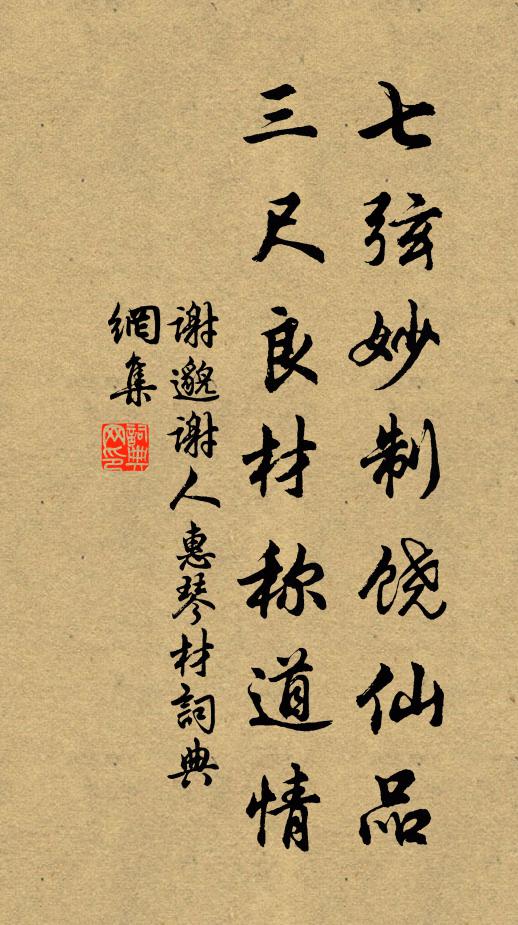 七弦妙制饶仙品
三尺良材称道情
谢邈谢人惠琴材詞典
網集
詞典
网印